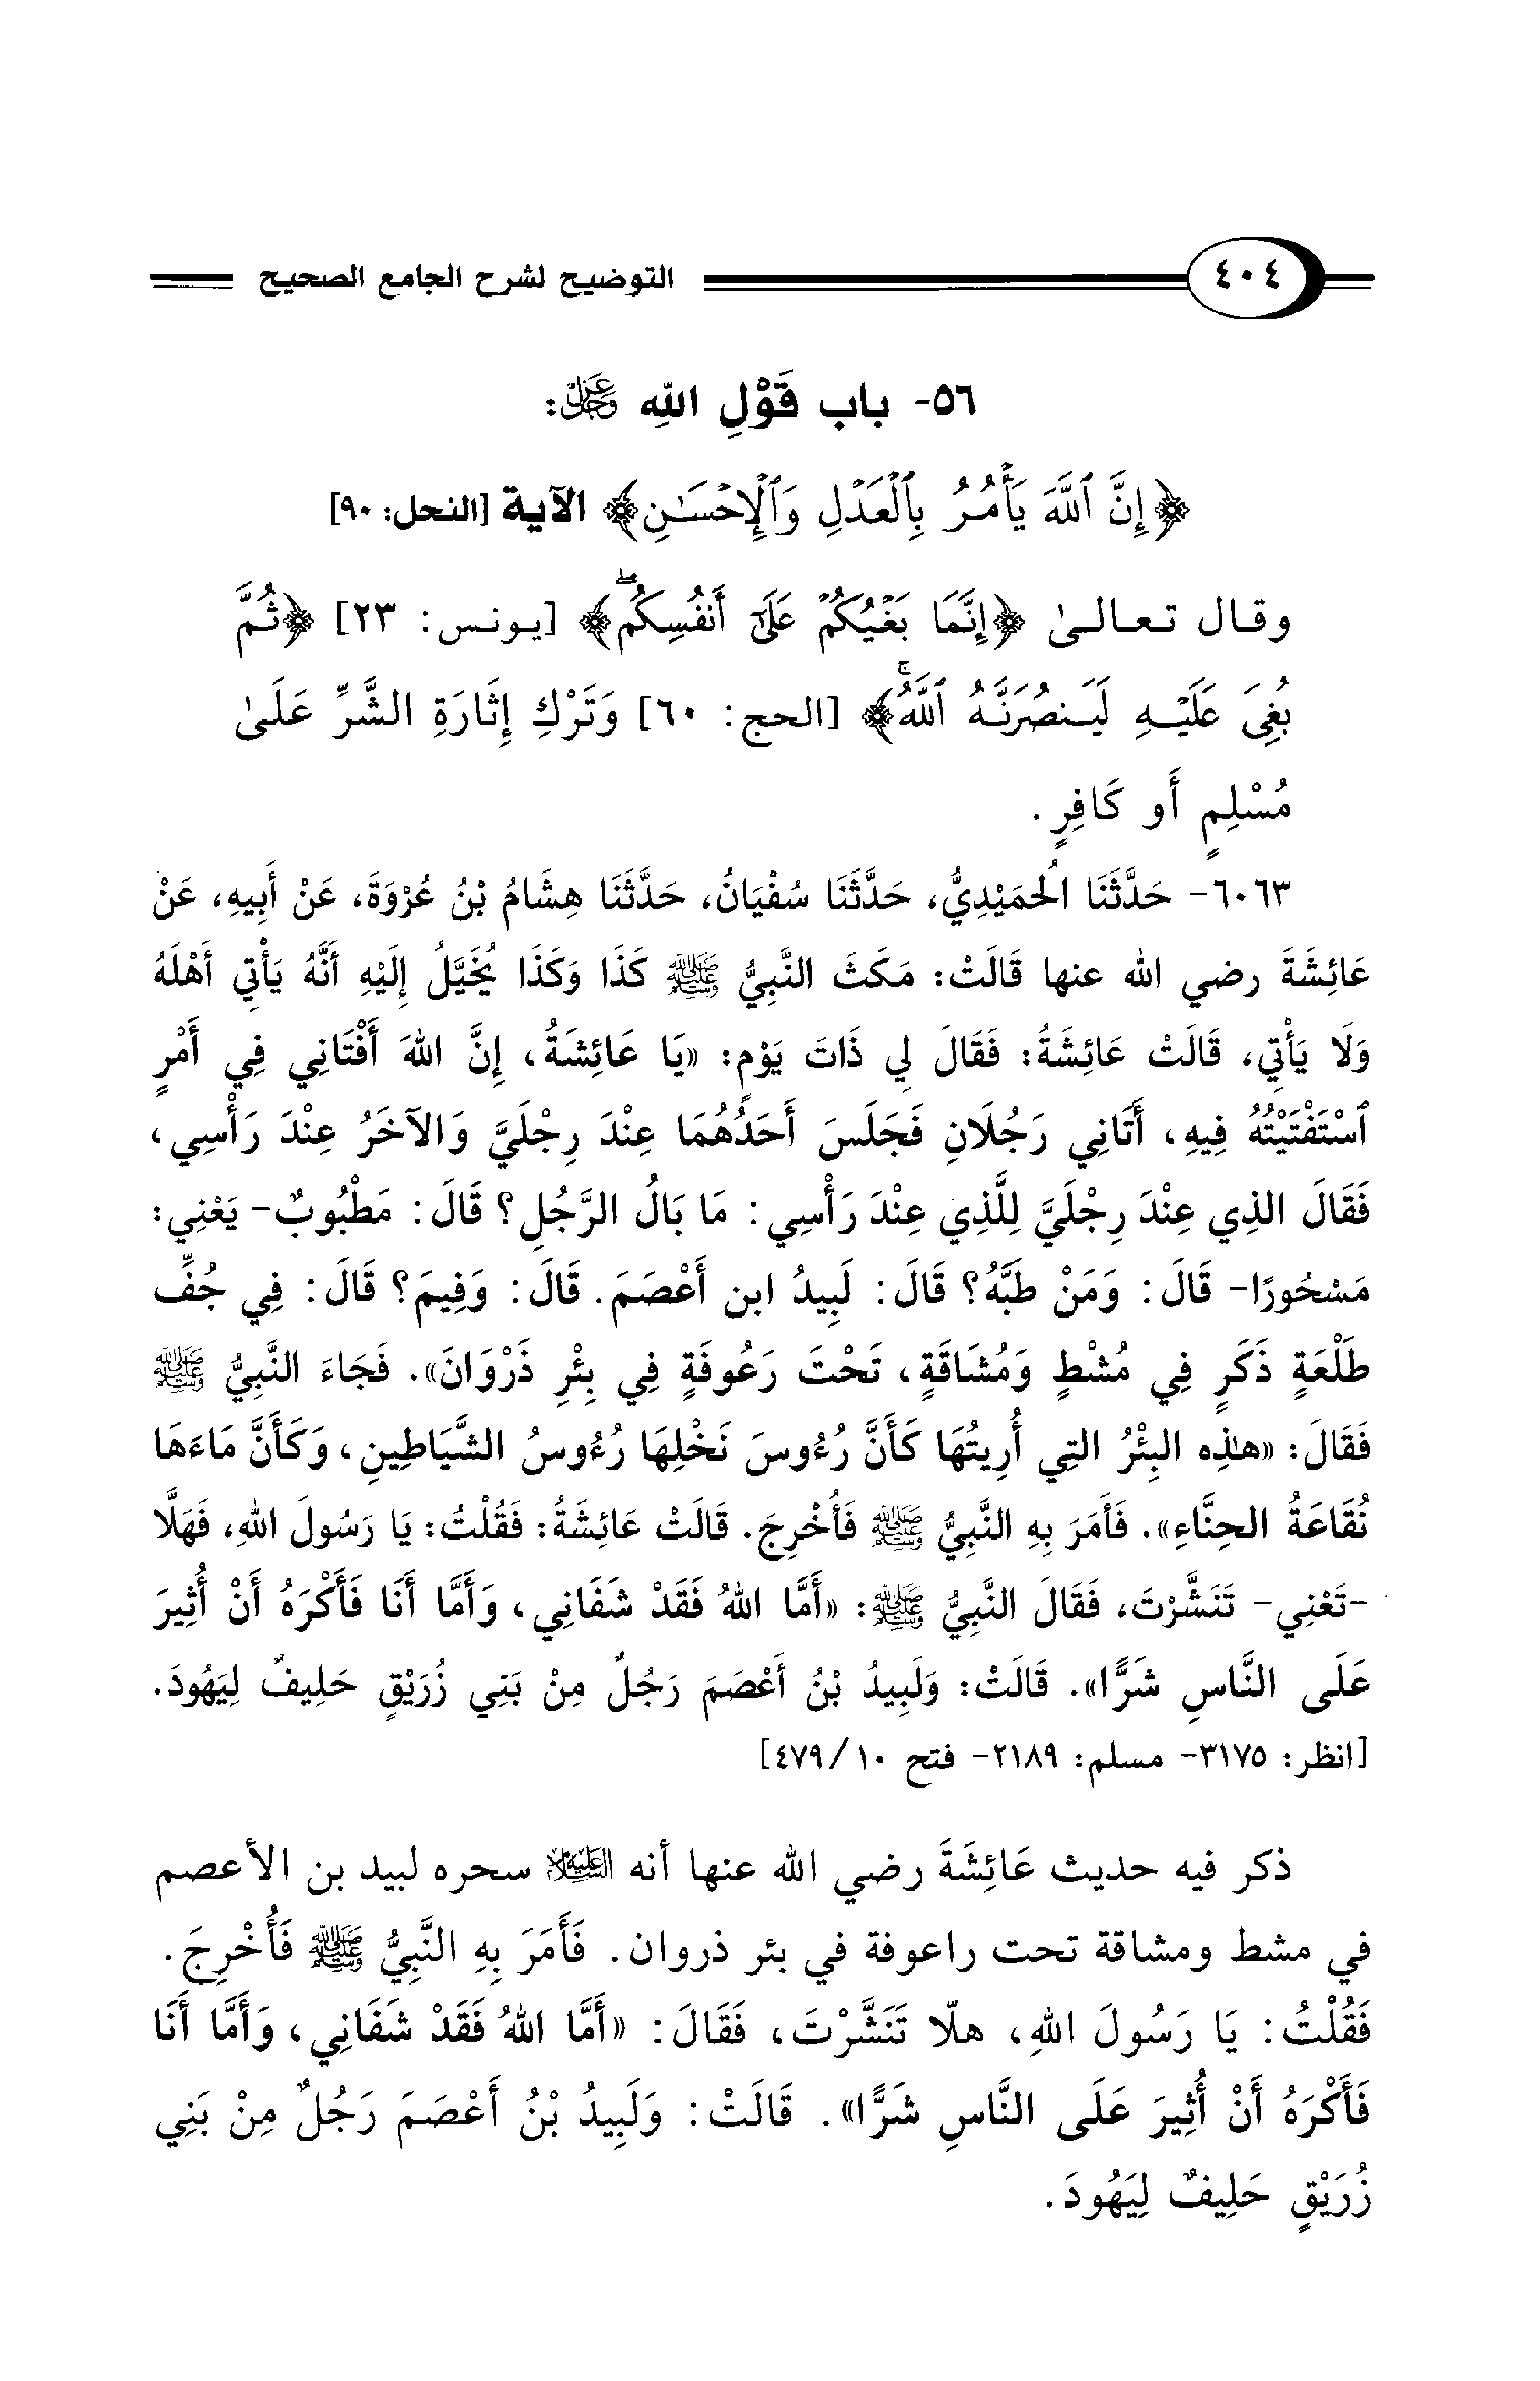 ٤٠٤ التوضيح لشرح الجامع الصحيح
٥٦- باب قَوْلِ اللهِ عَزَّ وَجَلَّ:
﴿إِنَّ ٱللَّهَ يَأْمُرُ بِٱلْعَدْلِ وَٱلْإِحْسَـٰنِ﴾ الآية [النحل: ٩٠]
وقال تعالىٰ ﴿إِنَّمَا بَغْيُكُمْ عَلَىٰٓ أَنفُسِكُمۖ﴾ [يونس: ٢٣] ﴿ثُمَّ
بُغِىَ عَلَيْهِ لَيَنصُرَنَّهُ ٱللَّهُۚ﴾ [الحج: ٦٠] وَتَرْكِ إِثَارَةِ الشَّرِّ عَلَىٰ
مُسْلِمٍ أَو كَافِرٍ.
٦٠٦٣- حَدَّثَنَا الُحمَيْدِيُّ، حَدَّثَنَا سُفْيَانُ، حَدَّثَنَا هِشَامُ بْنُ عُرْوَةَ، عَنْ أَبِيهِ، عَنْ
عَائِشَةَ رضي الله عنها قَالَتْ: مَكَثَ النَّبِيُّ ﷺ كَذَا وَكَذَا يُخَيَّلُ إِلَيْهِ أَنَّهُ يَأْتِي أَهْلَهُ
وَلَا يَأْتِي، قَالَتْ عَائِشَةُ: فَقَالَ لِي ذَاتَ يَوْمٍ: «يَا عَائِشَةُ، إِنَّ اللهَ أَفْتَانِي فِي أَمْرٍ
ٱسْتَفْتَيْتُهُ فِيهِ، أَتَانِي رَجُلَانِ فَجَلَسَ أَحَدُهُمَا عِنْدَ رِجْلَيَّ وَالآخَرُ عِنْدَ رَأْسِي،
فَقَالَ الذِي عِنْدَ رِجْلَيَّ لِلَّذِي عِنْدَ رَأْسِي: مَا بَالُ الرَّجُلِ؟ قَالَ: مَطْبُوبٌ- يَعْنِي:
مَسْحُورًا- قَالَ: وَمَنْ طَبَّهُ؟ قَالَ: لَبِيدُ ابن أَعْصَمَ. قَالَ: وَفِيمَ؟ قَالَ: فِي جُفِّ
طَلْعَةٍ ذَكَرٍ فِي مُشْطٍ وَمُشَاقَةٍ، تَحْتَ رَعُوفَةٍ فِي بِئْرِ ذَرْوَانَ». فَجَاءَ النَّبِيُّ ﷺ
فَقَالَ: «هٰذِه البِئْرُ التِي أُرِيتُهَا كَأَنَّ رُءُوسَ نَخْلِهَا رُءُوسُ الشَّيَاطِينِ، وَكَأَنَّ مَاءَهَا
نُقَاعَةُ الحِنَّاءِ». فَأَمَرَ بِهِ النَّبِيُّ ﷺ فَأُخْرِجَ. قَالَتْ عَائِشَةُ: فَقُلْتُ: يَا رَسُولَ اللهِ، فَهَلَّا
-تَعْنِي- تَنَشَّرْتَ، فَقَالَ النَّبِيُّ ﷺ: «أَمَّا اللهُ فَقَدْ شَفَانِي، وَأَمَّا أَنَا فَأَكْرَهُ أَنْ أُثِيرَ
عَلَى النَّاسِ شَرًّا». قَالَتْ: وَلَبِيدُ بْنُ أَعْصَمَ رَجُلٌ مِنْ بَنِي زُرَيْقٍ حَلِيفٌ لِيَهُودَ.
[انظر: ٣١٧٥- مسلم: ٢١٨٩- فتح ١٠/ ٤٧٩]
ذكر فيه حديث عَائِشَةَ رضي الله عنها أنه عليه السلام سحره لبيد بن الأعصم
في مشط ومشاقة تحت راعوفة في بئر ذروان. فَأَمَرَ بِهِ النَّبِيُّ ﷺ فَأُخْرِجَ.
فَقُلْتُ: يَا رَسُولَ اللهِ، هلّا تَنَشَّرْتَ، فَقَالَ: «أَمَّا اللهُ فَقَدْ شَفَانِي، وَأَمَّا أَنَا
فَأَكْرَهُ أَنْ أُثِيرَ عَلَى النَّاسِ شَرًّا». قَالَتْ: وَلَبِيدُ بْنُ أَعْصَمَ رَجُلٌ مِنْ بَنِي
زُرَيْقٍ حَلِيفٌ لِيَهُودَ.